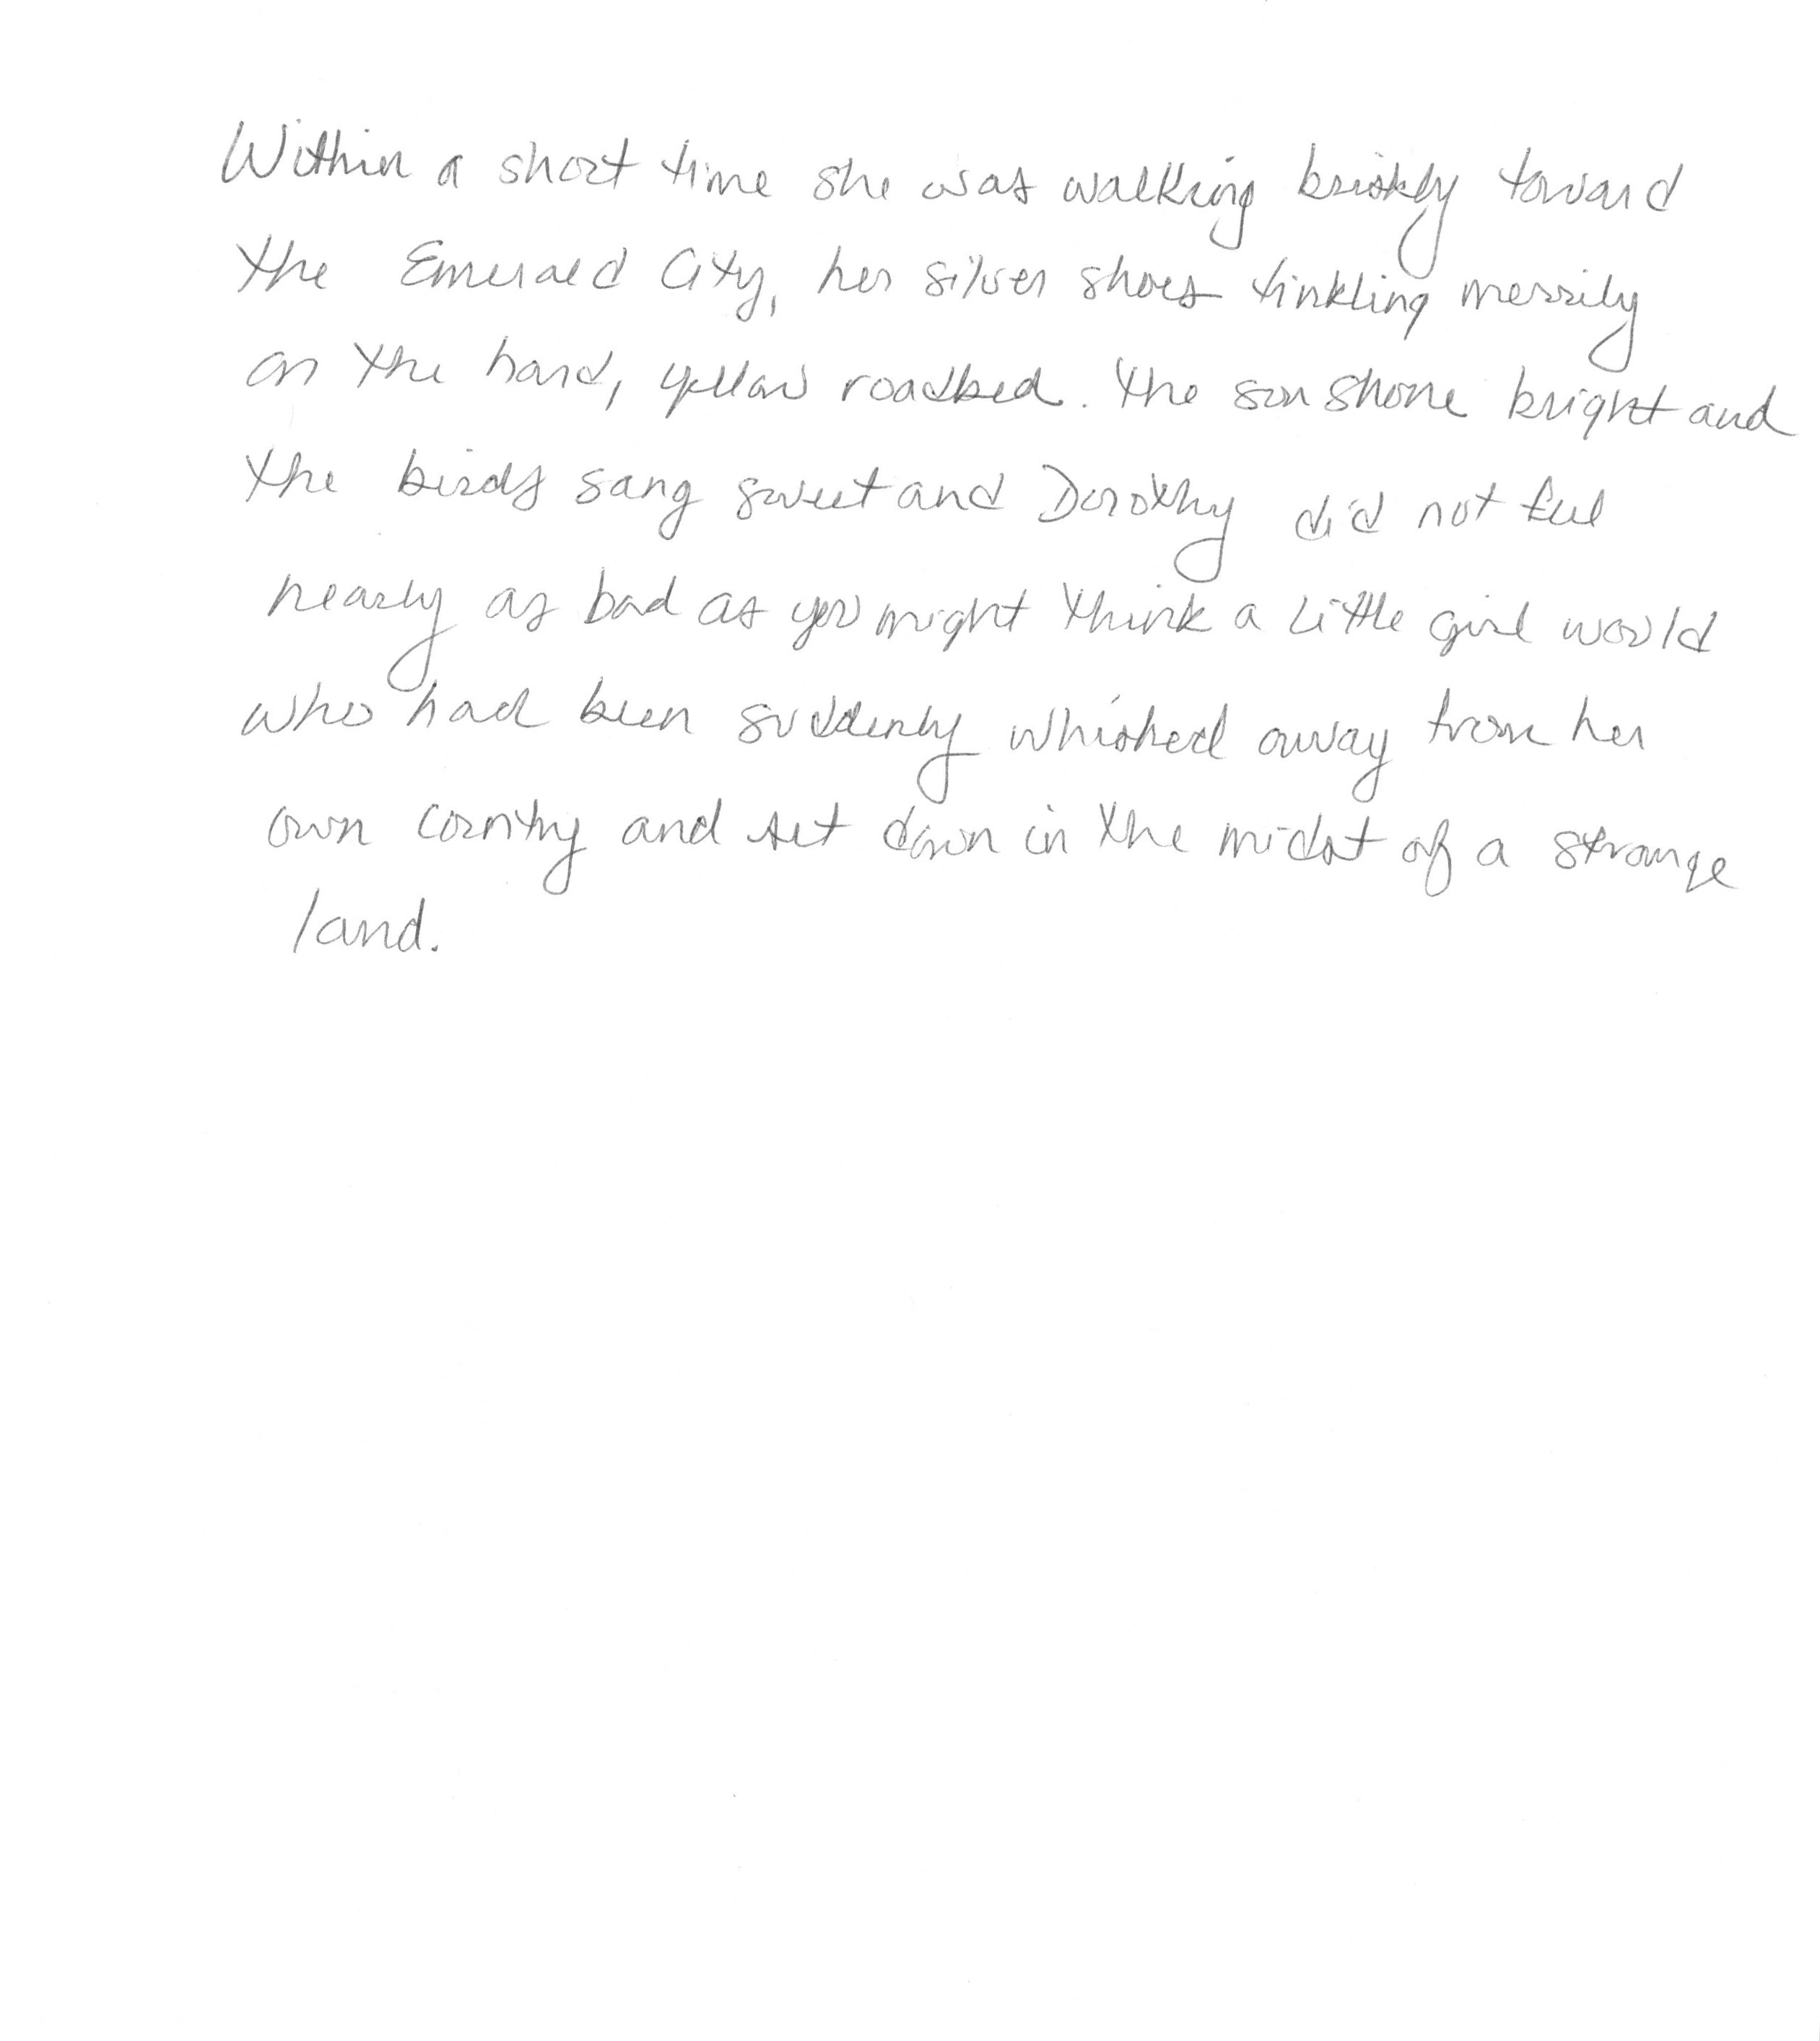 Within a short time she was walking briskly toward
the Emerald City, her silver shoes tinkling merrily
on the hard, yellow roadbed. the sun shone bright and
the birds sang sweet and Dorothy did not feel
nearly as bad as you might think a little girl would
who had been suddenly whisked away from her
own country and set down in the midst of a strange
land.